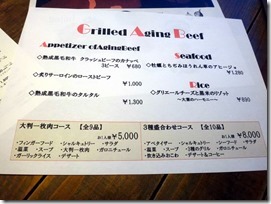 Grilled Aging Beef
Appetizer ofAgingBeef
◇熟成黒毛和牛 クラッシュビーフのカナッペ
3ピース ¥680
◇炙りサーロインのローストビーフ
¥1,000
◇熟成黒毛和牛のタルタル
¥1,300
Seafood
◇牡蠣とちぢみほうれん草のアヒージョ
¥1,280
Rice
◇グリエールチーズと黒米のリゾット
～大地のハーモニー～ ¥890
大判一枚肉コース 【全9品】
お1人様 ¥5,000
・フィンガーフード ・シャルキュトリー ・サラダ
・温菜 ・スープ ・大判一枚肉 ・ガロニチュール
・ガーリックライス ・デザート
3種盛合わせコース 【全10品】
お1人様 ¥8,000
・アペタイザー ・シャルキュトリー ・サラダ
・温菜 ・スープ ・3種のグリル ・ガロニチュール
・炊き込みおこわ ・デザート&コーヒー